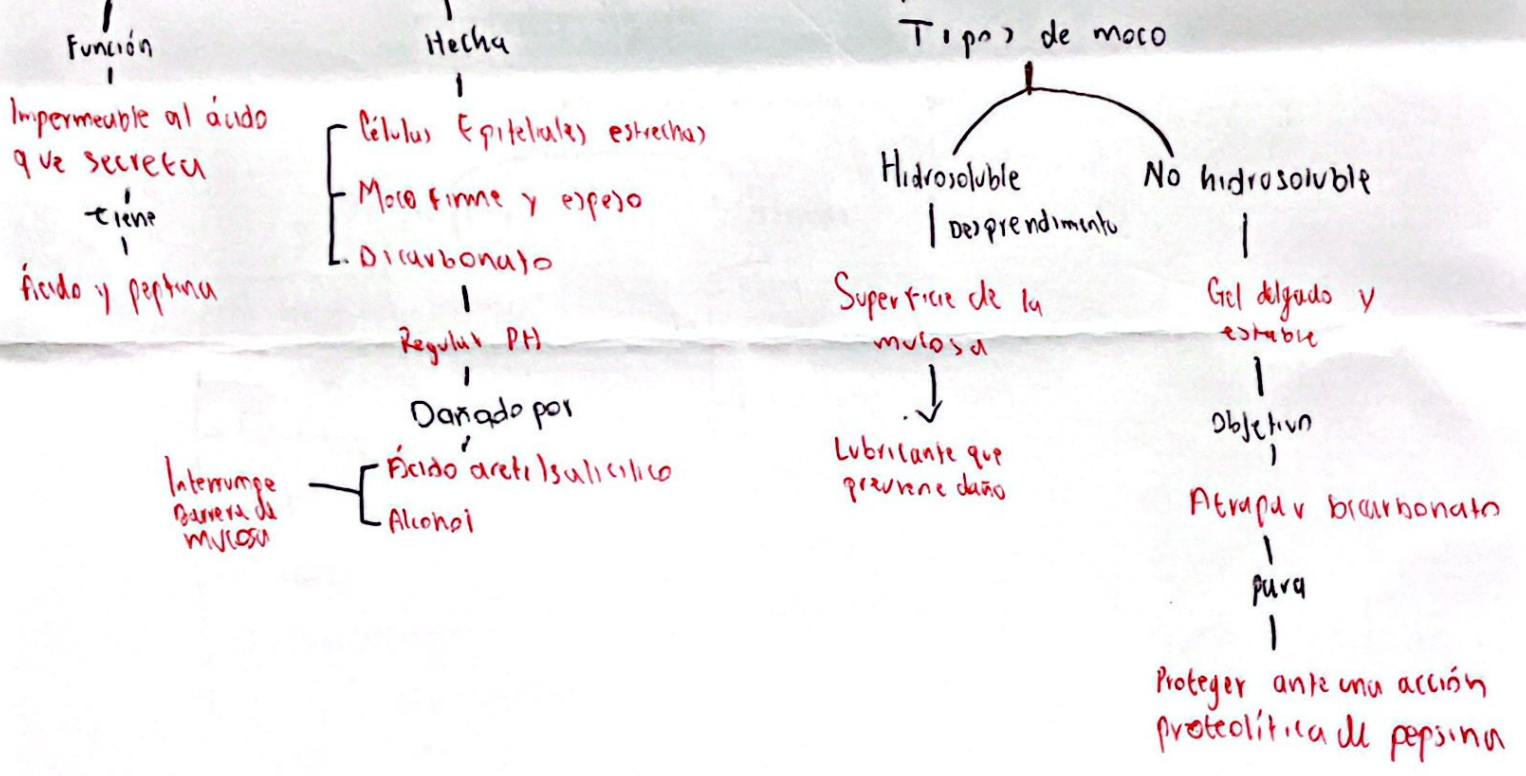 Función
Impermeable al ácido
que secreta
tiene
Ácido y peptina
Hecha
Células Epiteliales estrechas
Moco firme y espeso
Bicarbonato
Regular PH
Dañado por
Ácido acetilsalicilico
Alcohol
Interrumpe
Barrera de
mucosa
Tipos de moco
Hidrosoluble
Desprendimento
Superficie de la
mucosa
Lubricante que
previene daño
No hidrosoluble
Gel delgado y
estable
Objetivo
Atrapar bicarbonato
para
Proteger ante una acción
proteolítica de pepsina